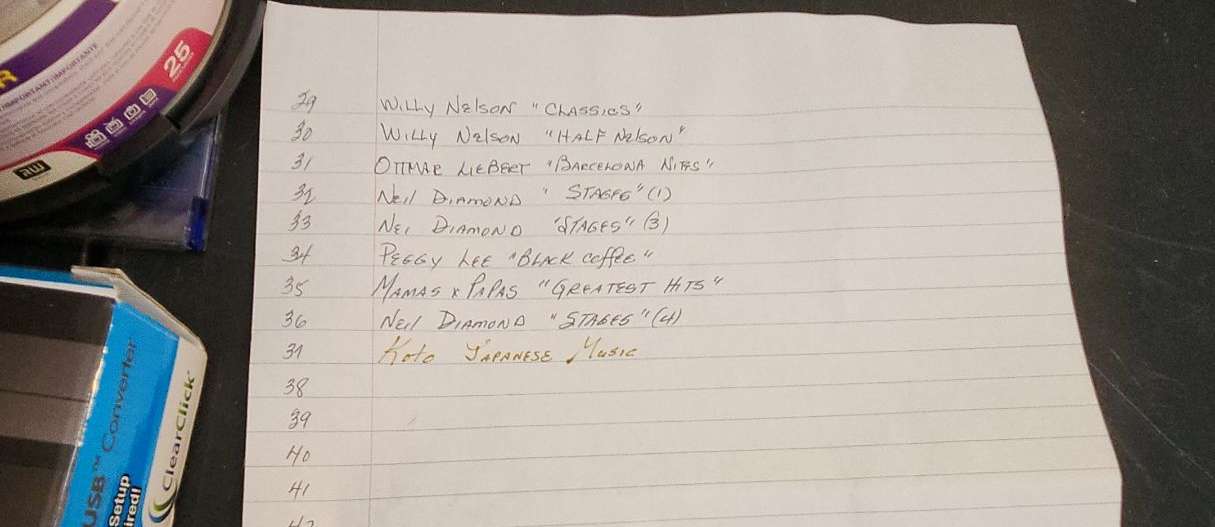 R
IMPORTANT/IMPORTANTE
25
RW
29 Willy Nelson "Classics"
30 Willy Nelson "HALF Nelson"
31 OTTMAR LIEBERT "BARCELONA NITES"
32 Neil DIAMOND "STAGES" (1)
33 Nei DIAMOND "STAGES" (3)
34 PEGGY LEE "BLACK coffee"
35 MAMAS & PAPAS "GREATEST HITS"
36 Neil DIAMOND "STAGES" (4)
37 Koto JAPANESE Music
38
39
40
41
42
USB™ Converter
Setup
ired!
ClearClick